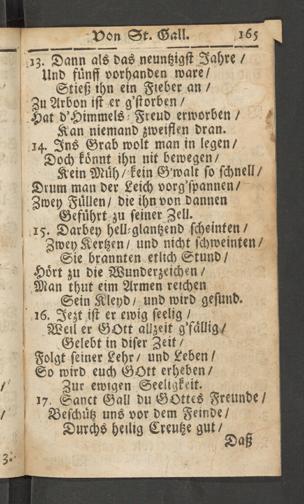 Von St. Gall. 165
13. Dann als das neuntzigst Jahre /
Und fünff vorhanden ware /
Stieß ihn ein Fieber an /
Zu Arbon ist er g'storben /
Hat d'Himmels-Freud erworben /
Kan niemand zweiflen dran.
14. Ins Grab wolt man in legen /
Doch könnt ihn nit bewegen /
Kein Müh / kein G'walt so schnell /
Drum man der Leich vorg'spannen /
Zwey Füllen / die ihn von dannen
Geführt zu seiner Zell.
15. Darbey hell-glantzend scheinten /
Zwey Kertzen / und nicht schweinten /
Sie brannten etlich Stund /
Hört zu die Wunderzeichen /
Man thut eim Armen reichen
Sein Kleyd / und wird gesund.
16. Jezt ist er ewig seelig /
Weil er GOtt allzeit g'fällig /
Gelebt in diser Zeit /
Folgt seiner Lehr / und Leben /
So wird euch GOtt erheben /
Zur ewigen Seeligkeit.
17. Sanct Gall du GOttes Freunde /
Beschütz uns vor dem Feinde /
Durchs heilig Creutze gut /
Daß
3.